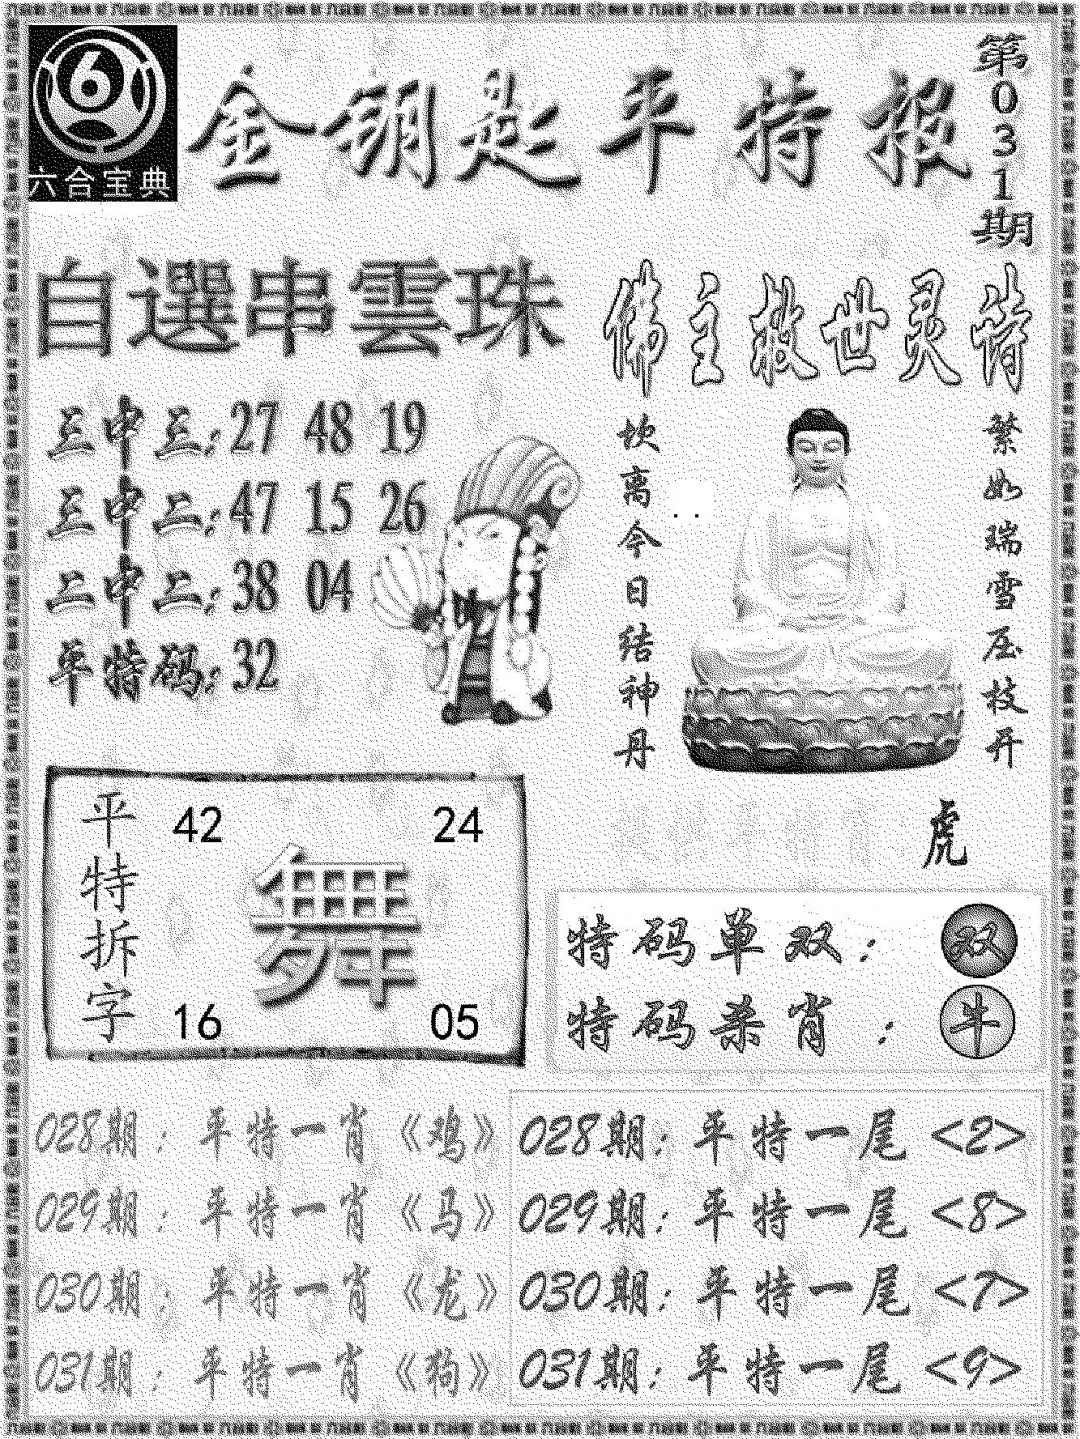 六合宝典
金钥匙平特报
第031期
自選串雲珠
三中三:27 48 19
三中二:47 15 26
二中二:38 04
平特码:32
佛主救世灵诗
坎离今日结神丹
繁如瑞雪压枝开
虎
平特拆字
42 24
舞
16 05
特码单双:双
特码杀肖:牛
028期:平特一肖《鸡》
029期:平特一肖《马》
030期:平特一肖《龙》
031期:平特一肖《狗》
028期:平特一尾<2>
029期:平特一尾<8>
030期:平特一尾<7>
031期:平特一尾<9>